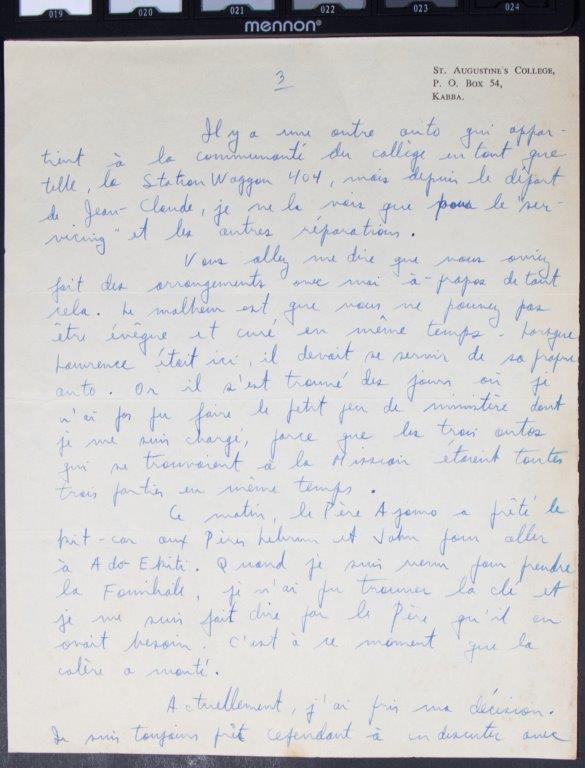 019 020 021 022 023 024
mennon®
3
ST. AUGUSTINE'S COLLEGE,
P. O. BOX 54,
KABBA.
Il y a une autre auto qui appar-
tient à la communauté du collège en tant que
telle, la Station Waggon 404, mais depuis le départ
de Jean-Claude, je ne la vois que pour le "ser-
vicing" et les autres réparations.
Vous allez me dire que vous aviez
fait des arrangements avec moi à-propos de tout
cela. Le malheur est que vous ne pouvez pas
être évêque et curé en même temps. Lorsque
Lawrence était ici, il devait se servir de sa propre
auto. Or il s'est trouvé des jours où je
n'ai pas pu faire le petit peu de ministère dont
je me suis chargé, parce que les trois autos
qui se trouvaient à la Mission étaient toutes
trois parties en même temps.
Ce matin, le Père Ajomo a prêté le
kit-car aux Pères Lebrun et John pour aller
à Ado-Ekiti. Quand je suis venu pour prendre
la Familiale, je n'ai pu trouver la clé et
je me suis fait dire par le Père qu'il en
avait besoin. C'est à ce moment que la
colère a monté.
Actuellement, j'ai pris ma décision.
Je suis toujours prêt cependant à en discuter avec